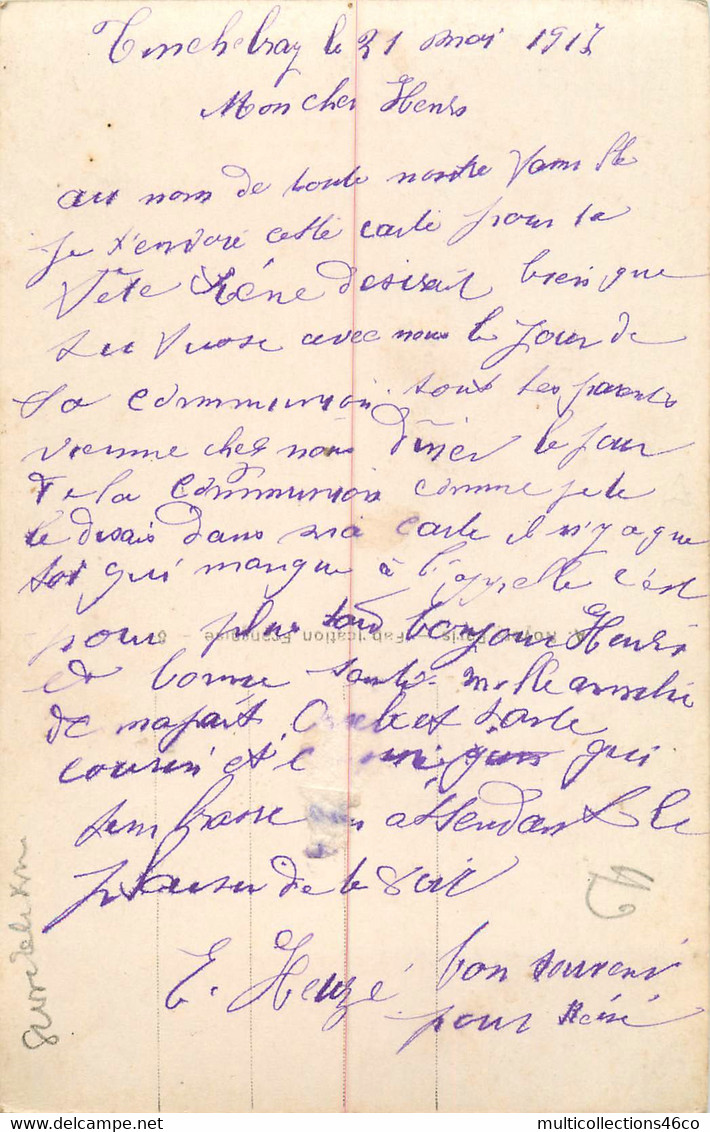 Tinchebray le 21 mai 1917
Mon cher Henri
au nom de toute nostre famille
je t'envoie cette carte pour ta
Fête Réné desirait bien que
tu fusse avec nous le jour de
sa communion. tout tes parents
vienne cher nous dîner le jour
de la communion comme je te
le disais dans ma carte il n'y a que
toi qui manque à l'appelle c'est
pour plus tard bonjour Henri
et bonne santé
de ma part et tante
cousin et qui
t'embrasse en attendant le
plaisir de te voir
E. Heuzé bon souvenir
pour Réné
A. Noyer, Paris — Fabrication Française
multicollections46co